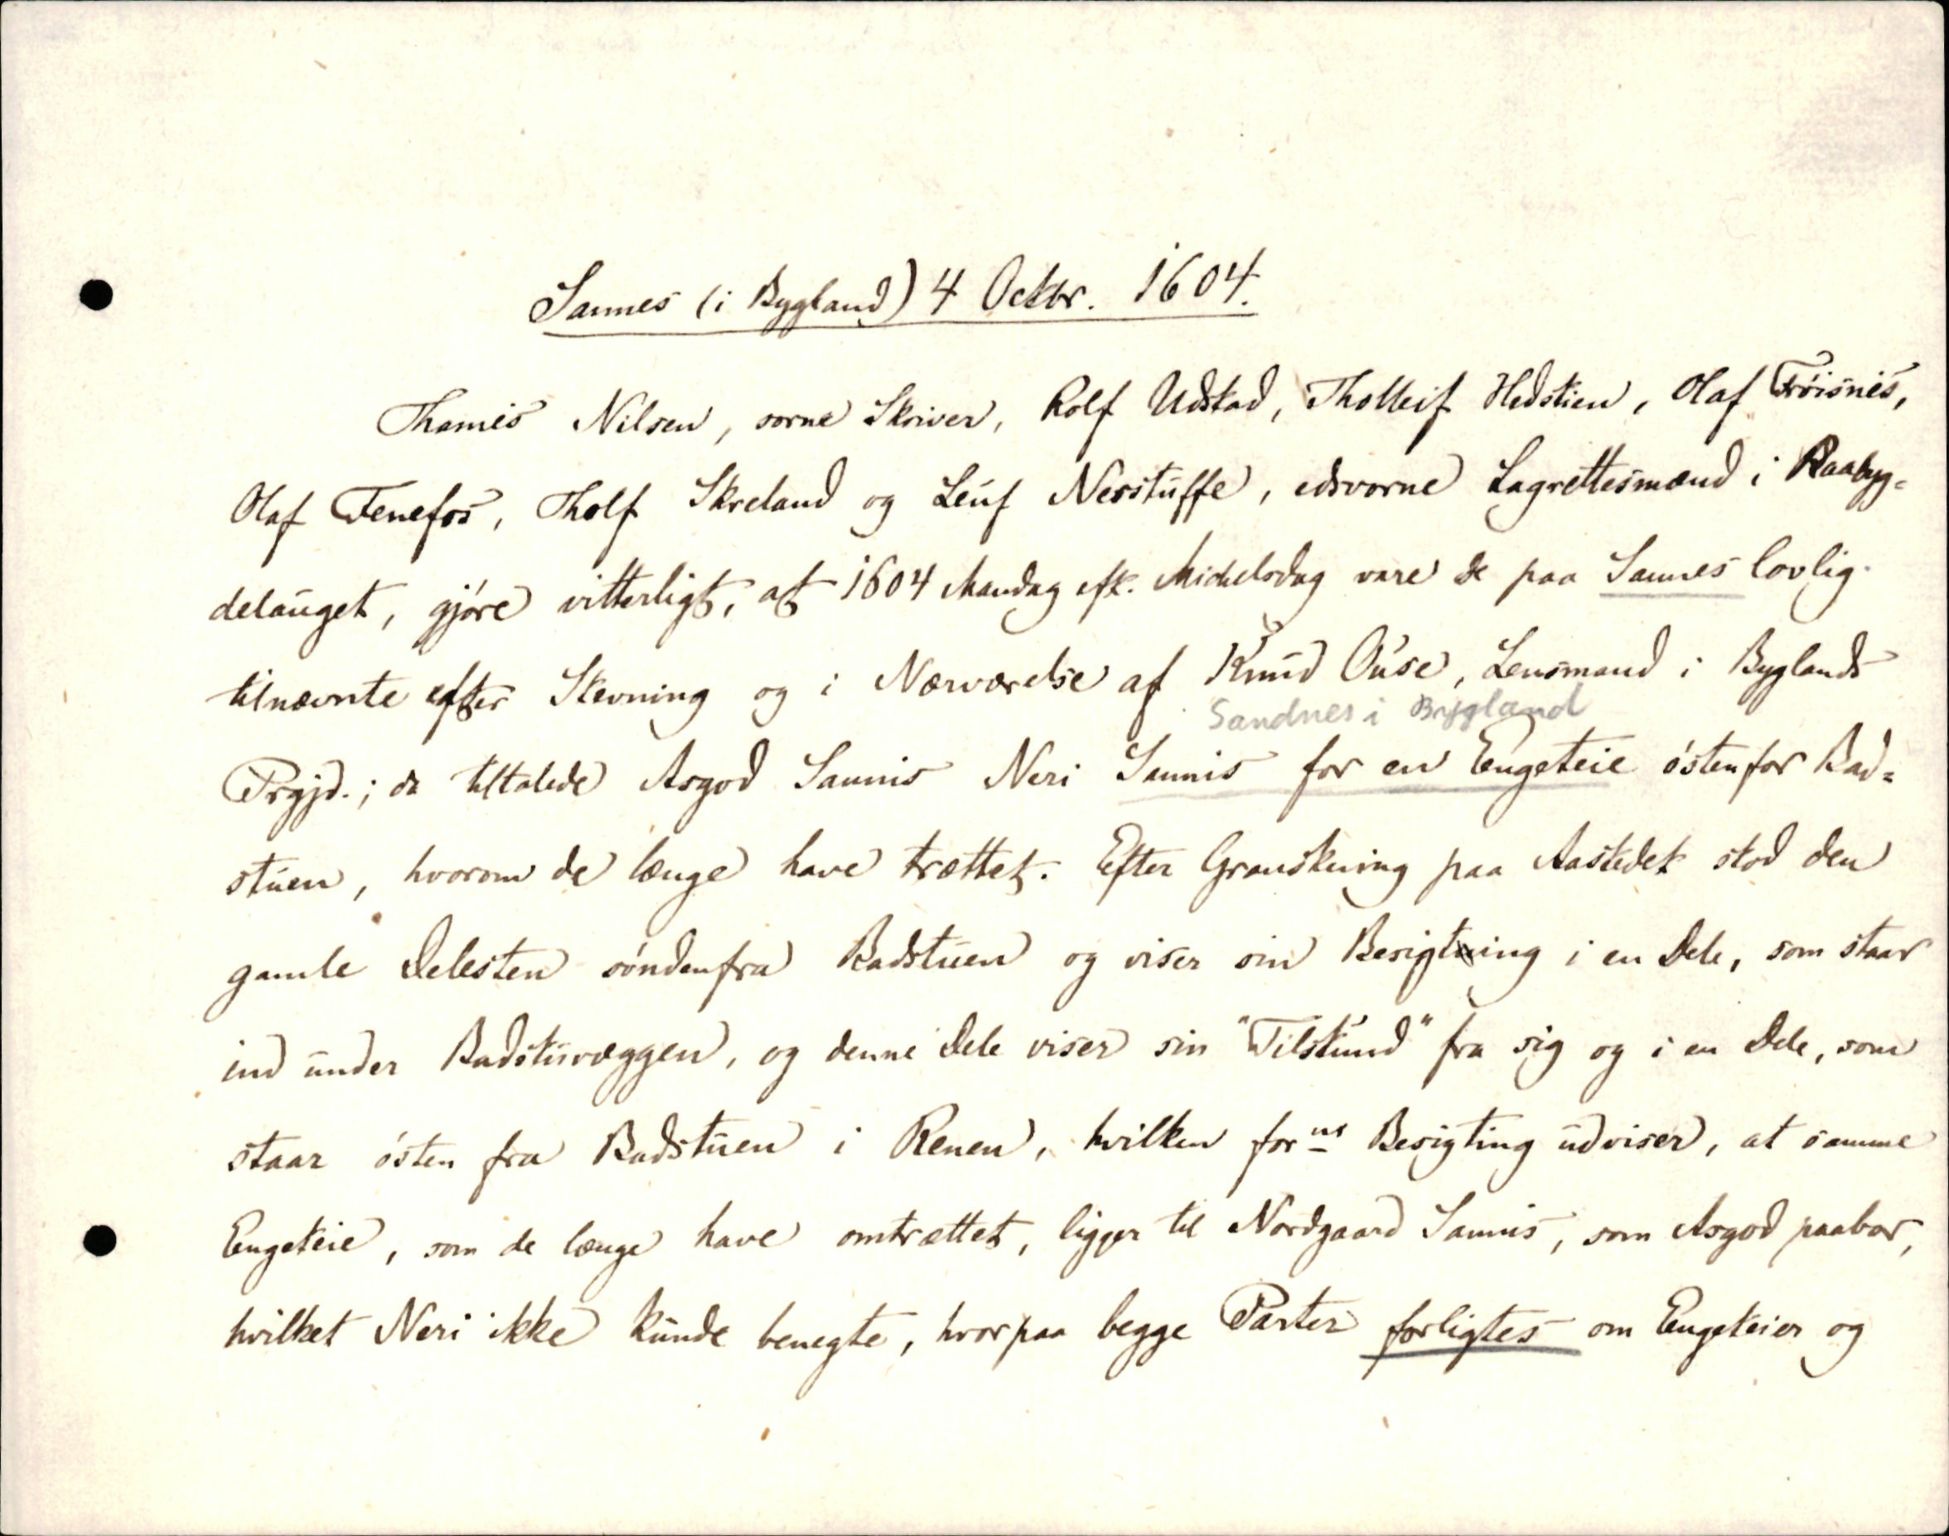 Sannes (i Bygland) 4 Octbr. 1604.
Thamis Nilsen, sorne Skriver, Rolf Udstad, Tholleif Hedstien, Olaf Frøisnes,
Olaf Tenefos, Tholf Skreland og Leuf Nesstuffe, edsvorne Lagrettesmænd i Raabyg-
delauget, gjøre vitterligt, at 1604 Mandag eft. Michelsdag vare de paa Sannes lovlig
tilnævnte efter Stevning og i Nærværelse af Knud Ouse, Lensmand i Byglands
Sandnes i Bygland
Prgjd.; da tiltalede Asgod Sannis Neri Sannis for en Engeteie østenfor Bad-
stuen, hvorom de længe have trættet. Efter Granskning paa Aastedet stod den
gamle Delesten søndenfra Badstuen og viser sin Besigtning i en Dele, som staar
ind under Badstuvæggen, og denne Dele viser sin "Tilstund" fra sig og i en Dele, som
staar østen fra Badstuen i Renen, hvilken forne Besigting udviser, at samme
Engeteie, som de længe have omtrættet, ligger til Nordgaard Sannis, som Asgod paabor,
hvilket Neri ikke kunde benegte, hvorpaa begge Parter forligtes om Engeteier og